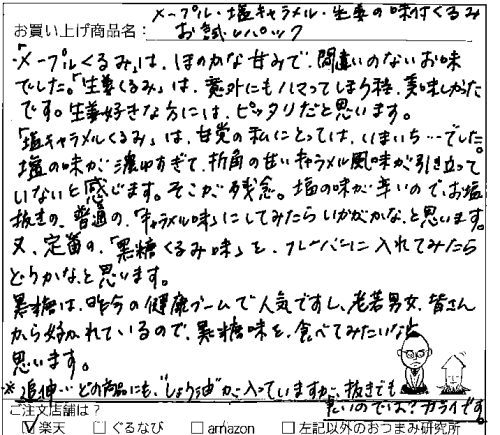 お買い上げ商品名： メープル・塩キャラメル・生姜の味付くるみ
お試しパック
「メープルくるみ」は、ほのかな甘みで、間違いのないお味
でした。「生姜くるみ」は、意外にもハマってしまう程、美味しかった
です。生姜好きな方には、ピッタリだと思います。
「塩キャラメルくるみ」は、甘党の私にとっては、いまいち…でした。
塩の味が濃ゆすぎて、折角の甘いキャラメル風味が引き立って
いないと感じます。そこが残念。塩の味が辛いので、お塩
抜きの、普通の、「キャラメル味」にしてみたらいかがかな、と思います。
又、定番の、「黒糖くるみ味」を、フレーバーに入れてみたら
どうかな、と思います。
黒糖は、昨今の健康ブームで人気ですし、老若男女、皆さん
から好かれているので、黒糖味を、食べてみたいなと
思います。
※追伸…どの商品にも、"しょう油"が、入っていますが、抜きでも
良いのでは？カライです。
ご注文店舗は？
☑楽天 □ぐるなび □amazon □左記以外のおつまみ研究所